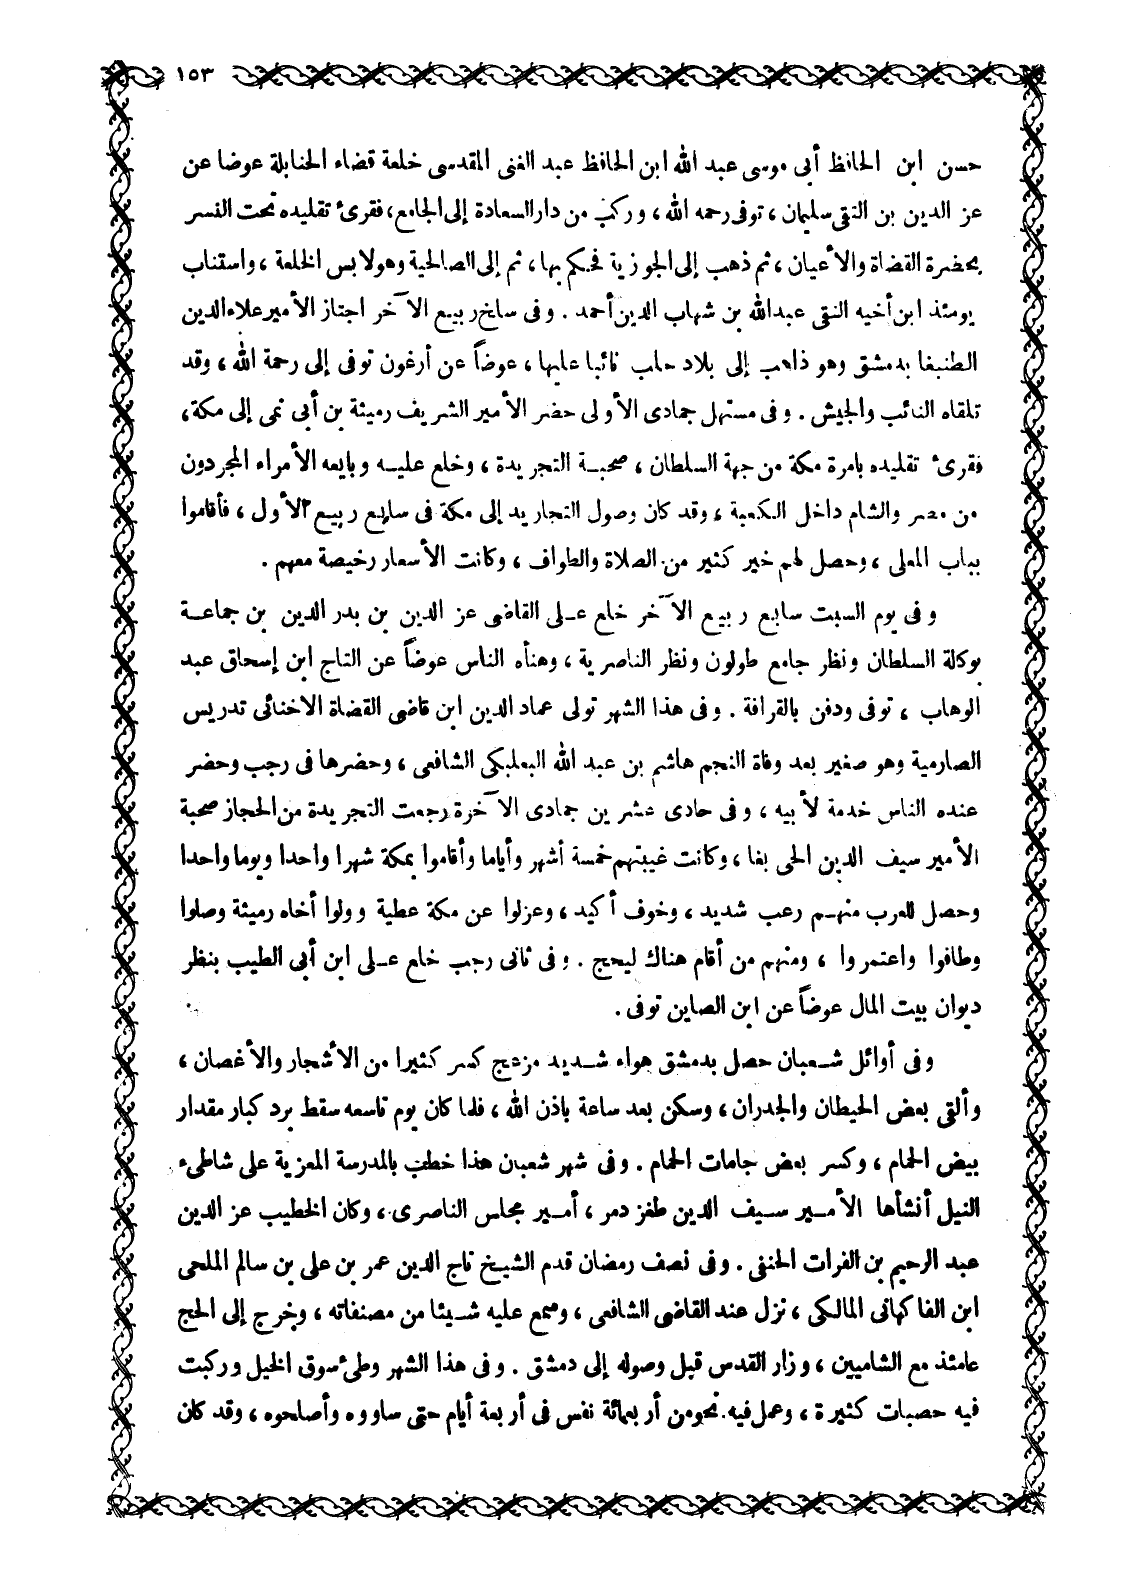 ١٥٣
حسن ابن الحافظ أبى موسى عبد الله ابن الحافظ عبد الغنى المقدسى خلعة قضاء الحنابلة عوضا عن
عز الدين بن التقى سليمان ، توفى رحمه الله ، وركب من دار السعادة إلى الجامع ، فقرئ تقليده تحت النسر
بحضرة القضاة والأعيان ، ثم ذهب إلى الجوزية فحكم بها ، ثم إلى الصالحية وهو لابس الخلعة ، واستناب
يومئذ ابن أخيه التقى عبدالله بن شهاب الدين أحمد . وفى سلخ ربيع الآخر اجتاز الأمير علاء الدين
الطنبغا بدمشق وهو ذاهب إلى بلاد حلب نائبا عليها ، عوضاً عن أرغون توفى إلى رحمة الله ، وقد
تلقاه النائب والجيش . وفى مستهل جمادى الأولى حضر الأمير الشريف رميثة بن أبى نمى إلى مكة ،
فقرئ تقليده بامرة مكة من جهة السلطان ، صحبة التجريدة ، وخلع عليه وبايعه الأمراء المجردون
من مصر والشام داخل الكعبة ، وقد كان وصول التجاريد إلى مكة فى سابع ربيع الأول ، فأقاموا
بباب المعلى ، وحصل لهم خير كثير من الصلاة والطواف ، وكانت الأسعار رخيصة معهم .
وفى يوم السبت سابع ربيع الآخر خلع على القاضى عز الدين بن بدر الدين بن جماعة
بوكالة السلطان ونظر جامع طولون ونظر الناصرية ، وهنأه الناس عوضاً عن التاج ابن إسحاق عبد
الوهاب ، توفى ودفن بالقرافة . وفى هذا الشهر تولى عماد الدين ابن قاضى القضاة الاخنائى تدريس
الصارمية وهو صغير بعد وفاة النجم هاشم بن عبد الله البعلبكى الشافعى ، وحضرها فى رجب وحضر
عنده الناس خدمة لأبيه ، وفى حادى عشرين جمادى الآخرة رجعت التجريدة من الحجاز صحبة
الأمير سيف الدين الجى بغا ، وكانت غيبتهم خمسة أشهر وأياما وأقاموا بمكة شهرا واحدا ويوما واحدا
وحصل للعرب منهم رعب شديد ، وخوف أكيد ، وعزلوا عن مكة عطية وولوا أخاه رميثة وصلوا
وطافوا واعتمروا ، ومنهم من أقام هناك ليحج . وفى ثانى رجب خلع على ابن أبى الطيب بنظر
ديوان بيت المال عوضاً عن ابن الصاين توفى .
وفى أوائل شعبان حصل بدمشق هواء شديد مزعج كسر كثيرا من الأشجار والأغصان ،
وألقى بعض الحيطان والجدران ، وسكن بعد ساعة باذن الله ، فلما كان يوم تاسعه سقط برد كبار مقدار
بيض الحمام ، وكسر بعض جامات الحمام . وفى شهر شعبان هذا خطب بالمدرسة المعزية على شاطىء
النيل أنشأها الأمير سيف الدين طغز دمر ، أمير مجلس الناصرى ، وكان الخطيب عز الدين
عبد الرحيم بن الفرات الحنفى . وفى نصف رمضان قدم الشيخ تاج الدين عمر بن على بن سالم الملحى
ابن الفاكهانى المالكى ، نزل عند القاضى الشافعى ، وسمع عليه شيئا من مصنفاته ، وخرج إلى الحج
عامئذ مع الشاميين ، وزار القدس قبل وصوله إلى دمشق . وفى هذا الشهر وطئ سوق الخيل وركبت
فيه حصبات كثيرة ، وعمل فيه نحو من أربعمائة نفس فى أربعة أيام حتى ساووه وأصلحوه ، وقد كان